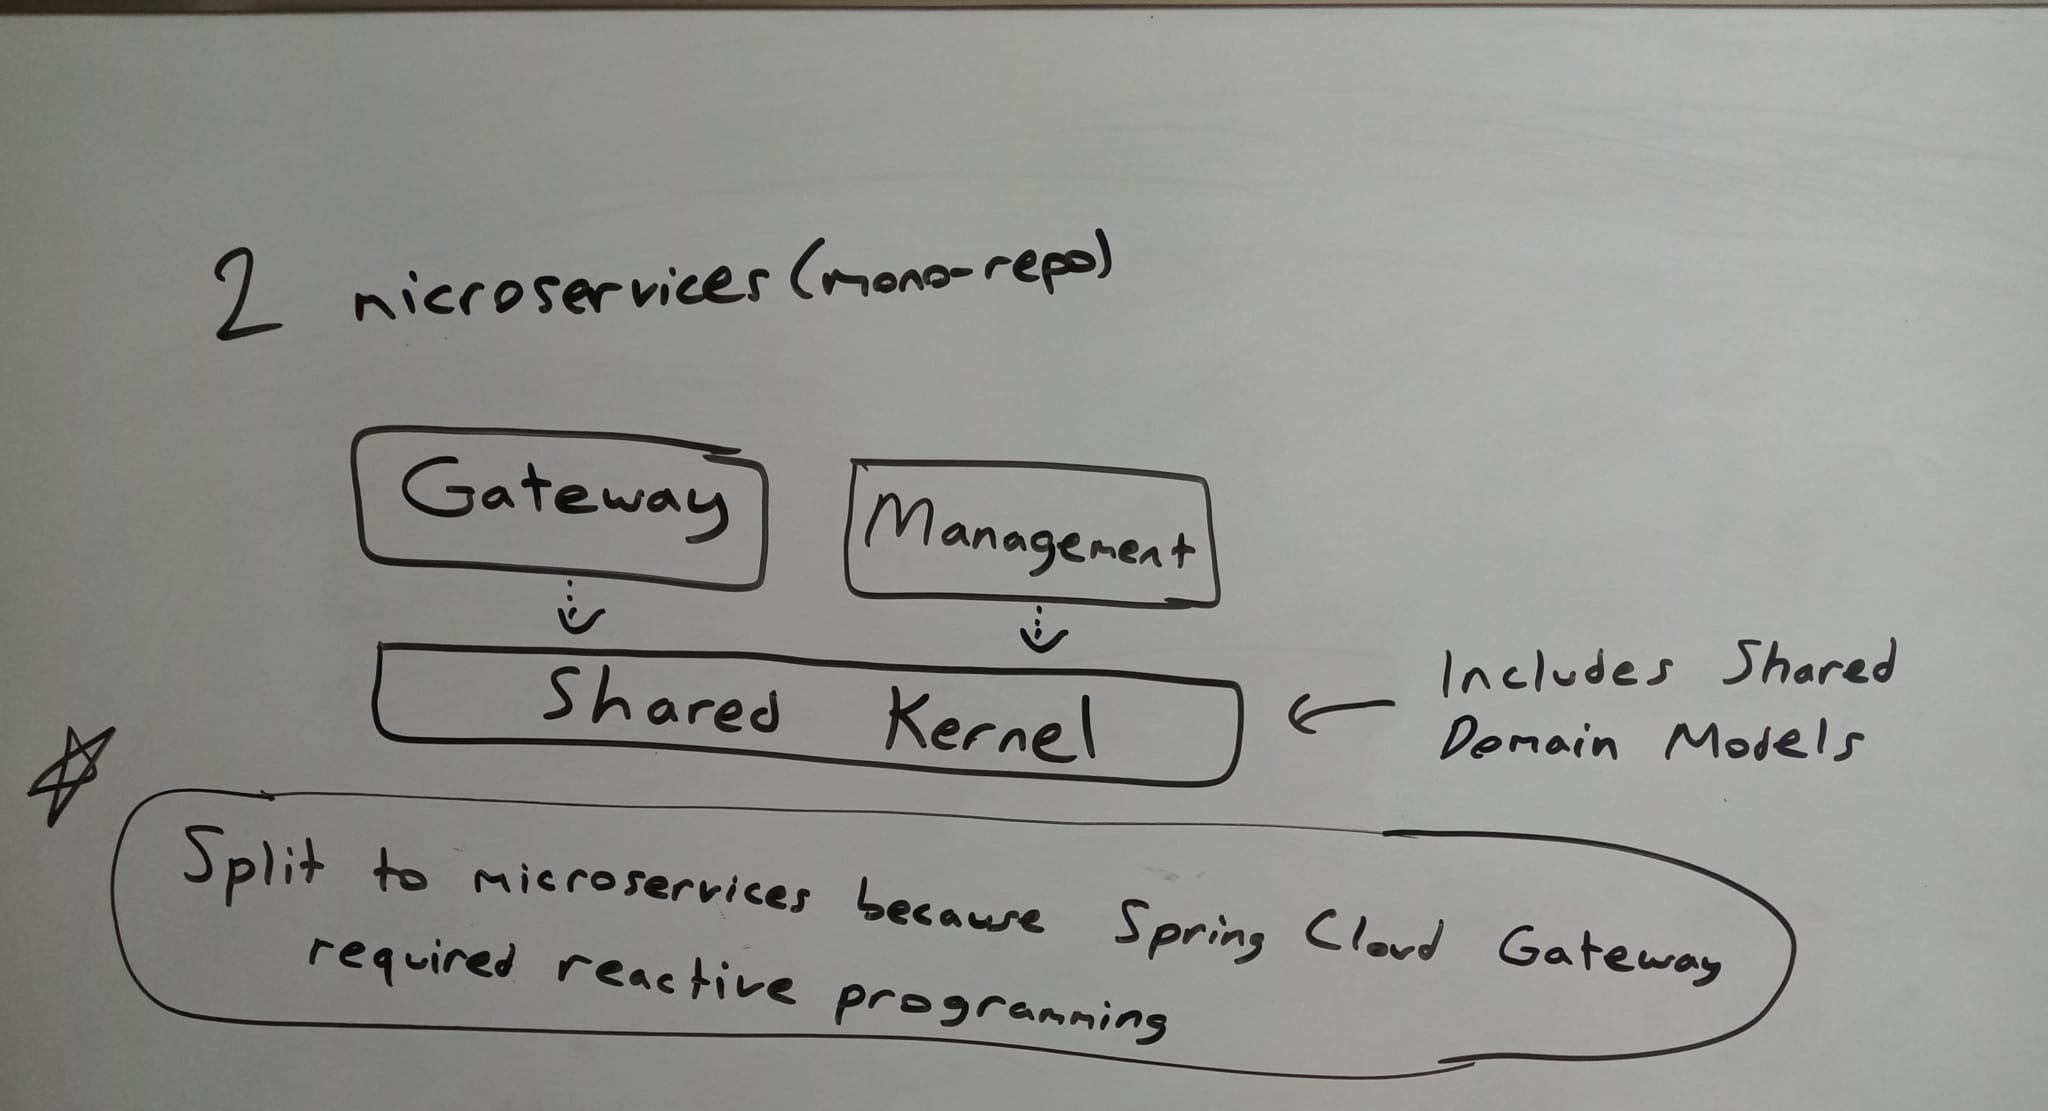 2 microservices (mono-repo)
Gateway
Management
Shared Kernel
Includes Shared
Domain Models
Split to microservices because Spring Cloud Gateway
required reactive programming